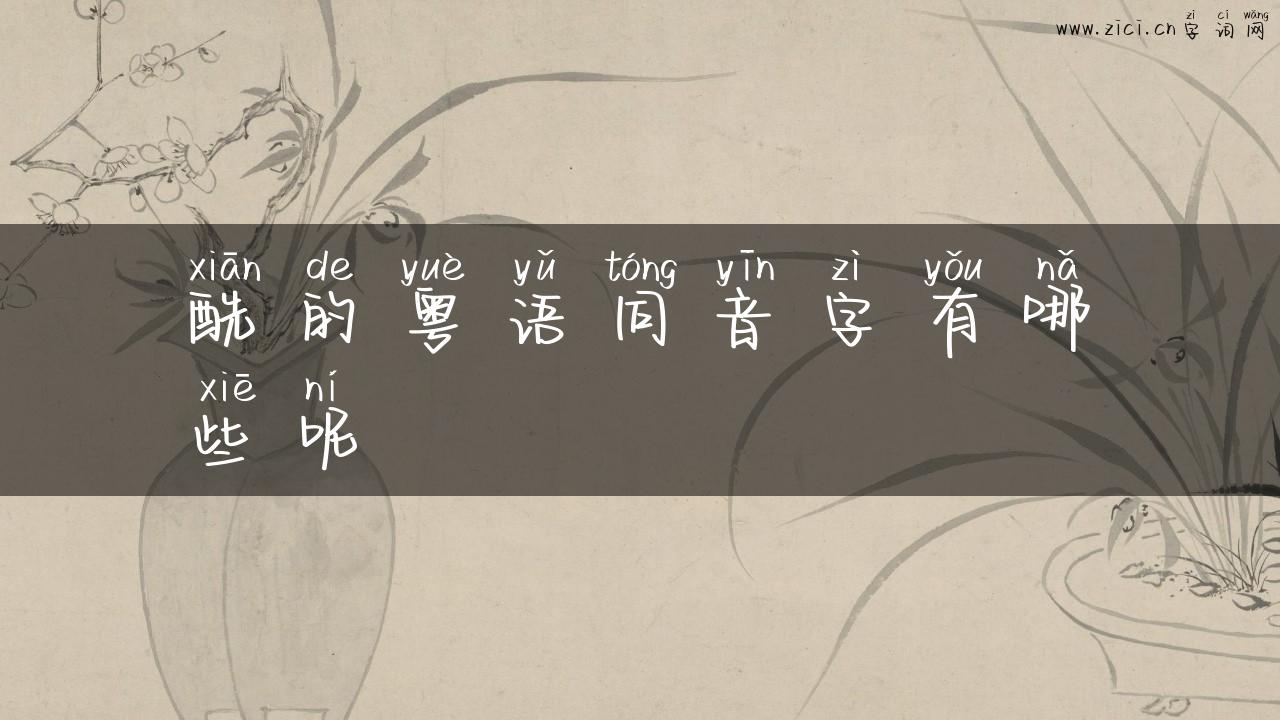 zì cí wǎng
www.zici.cn 字词网
xiān de yuè yǔ tóng yīn zì yǒu nǎ
酰的粤语同音字有哪
xiē ní
些呢